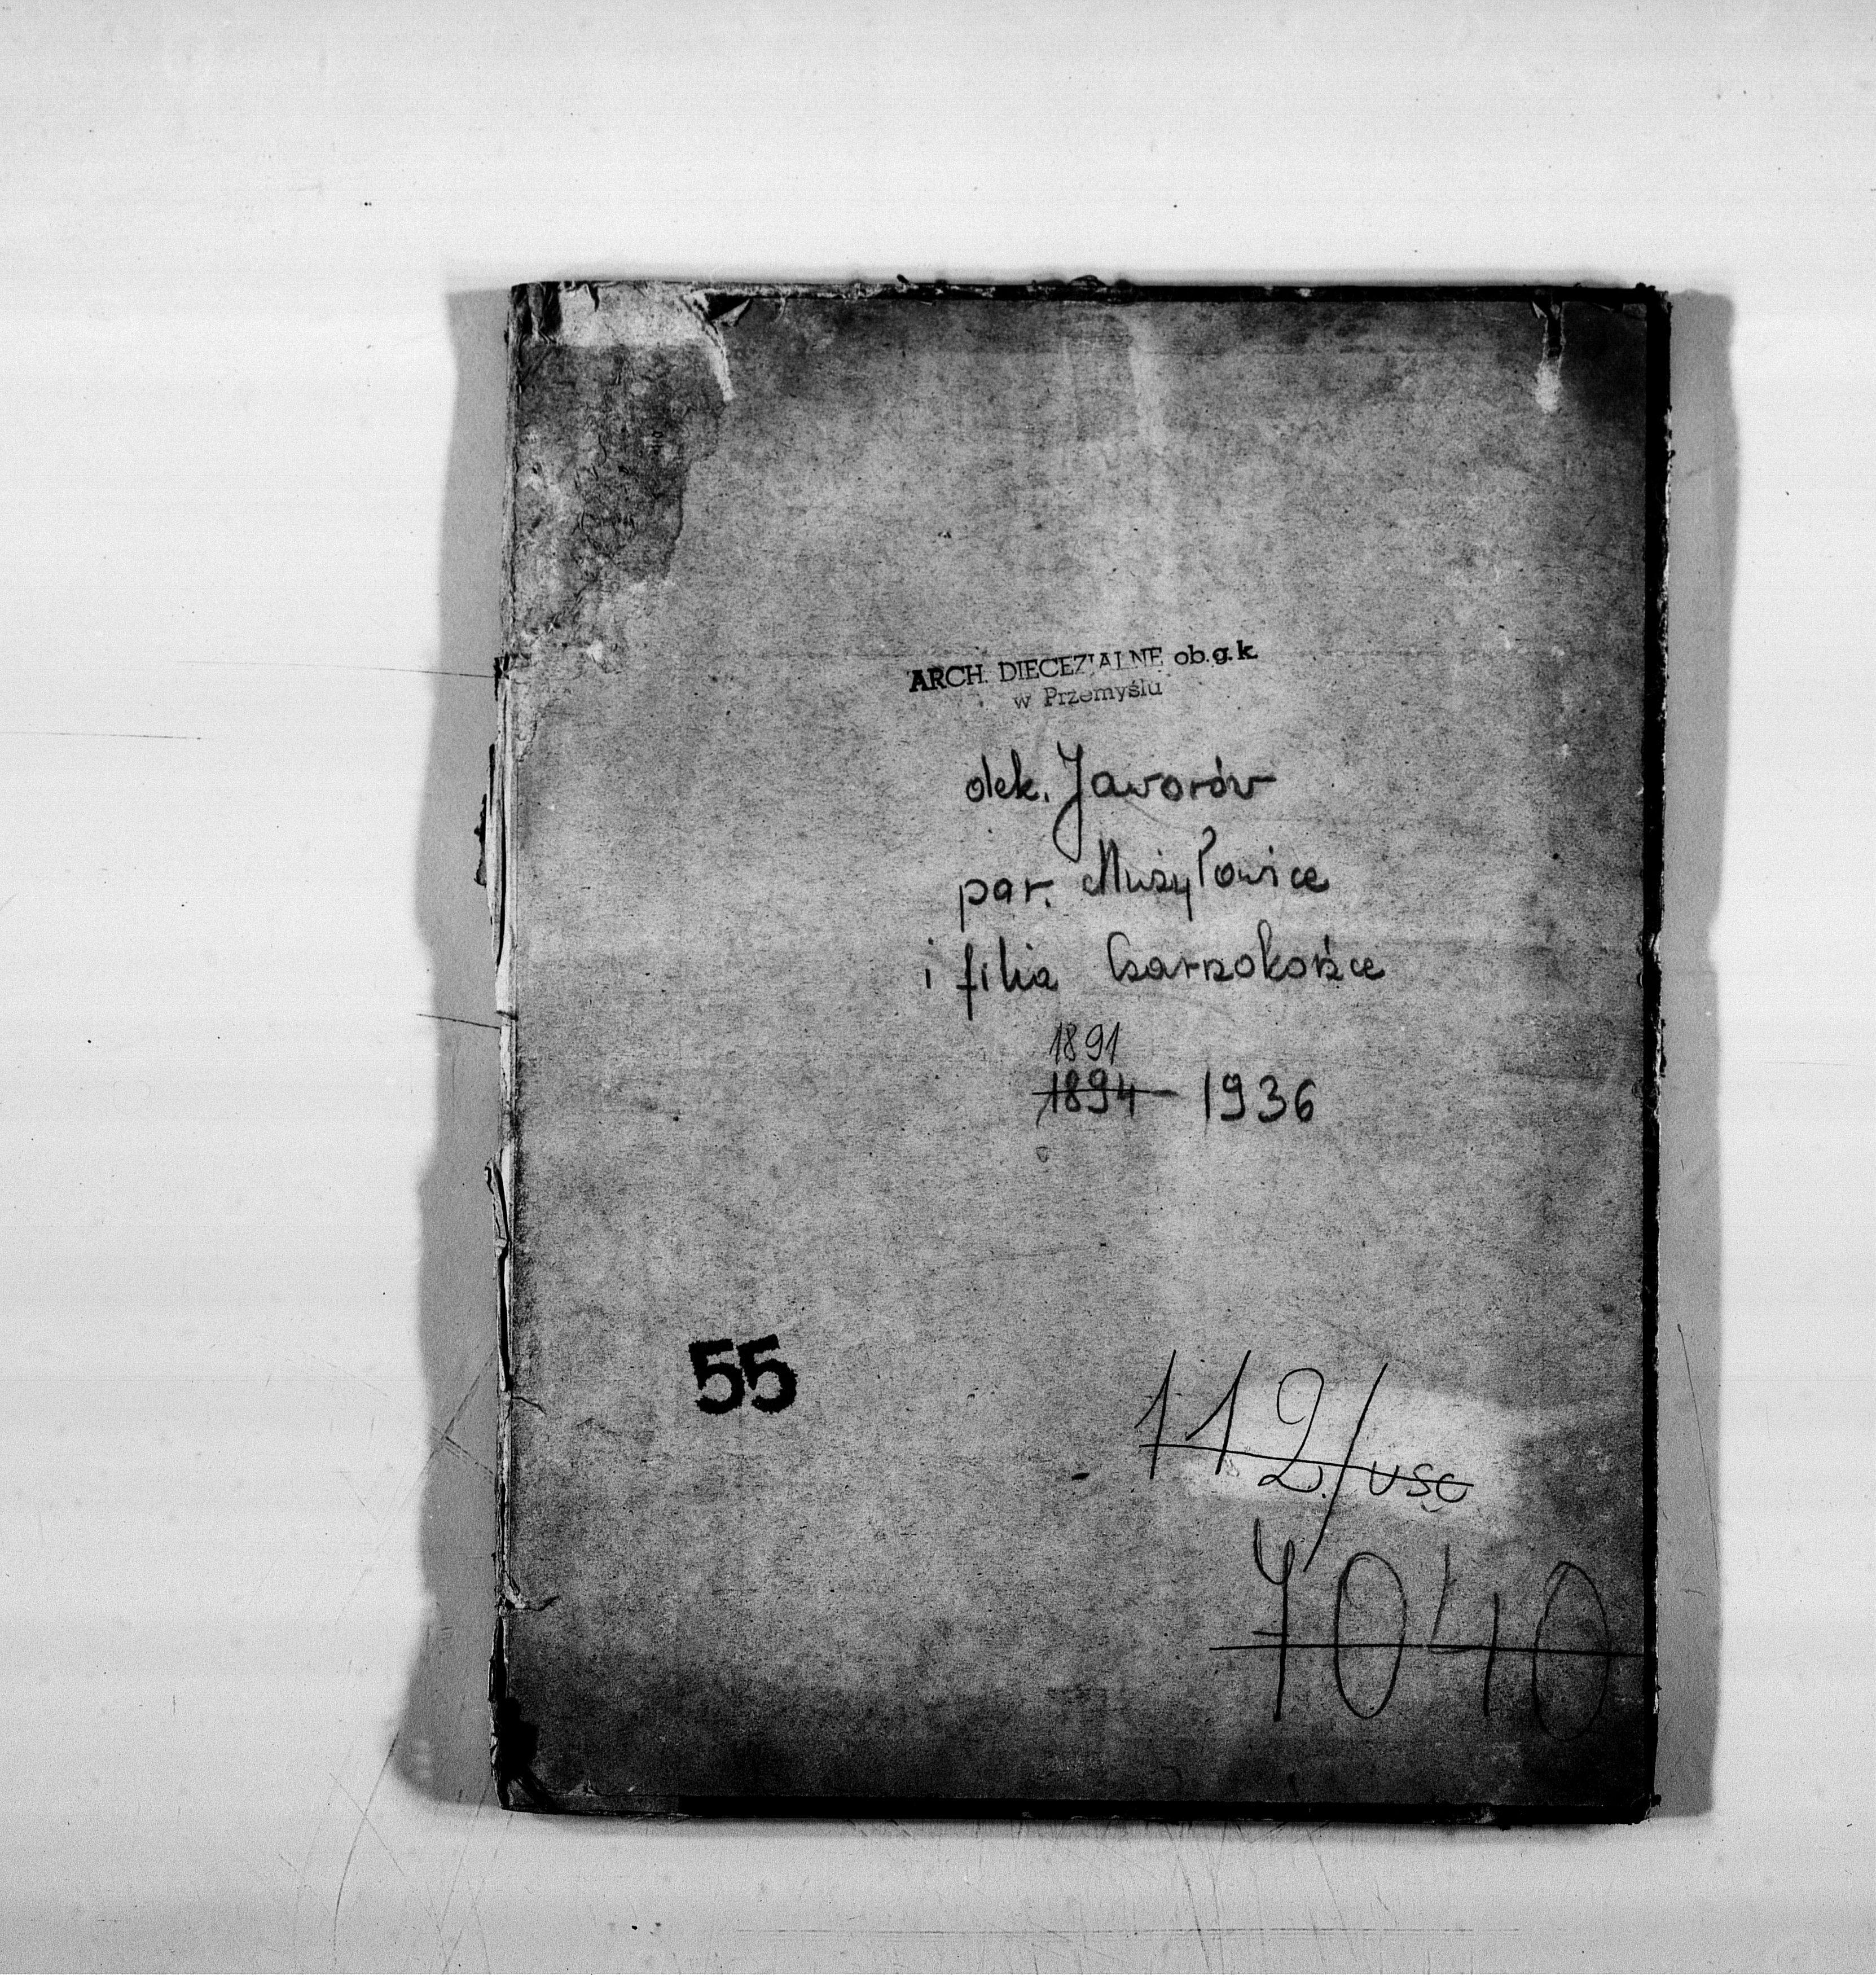 ARCH. DIECEZJALNE ob.g.k
w Przemyślu
dek. Jaworów
par. Mużyłowice
i filia Czarnokońce
1891
1894 - 1936
55
112/usc
7040